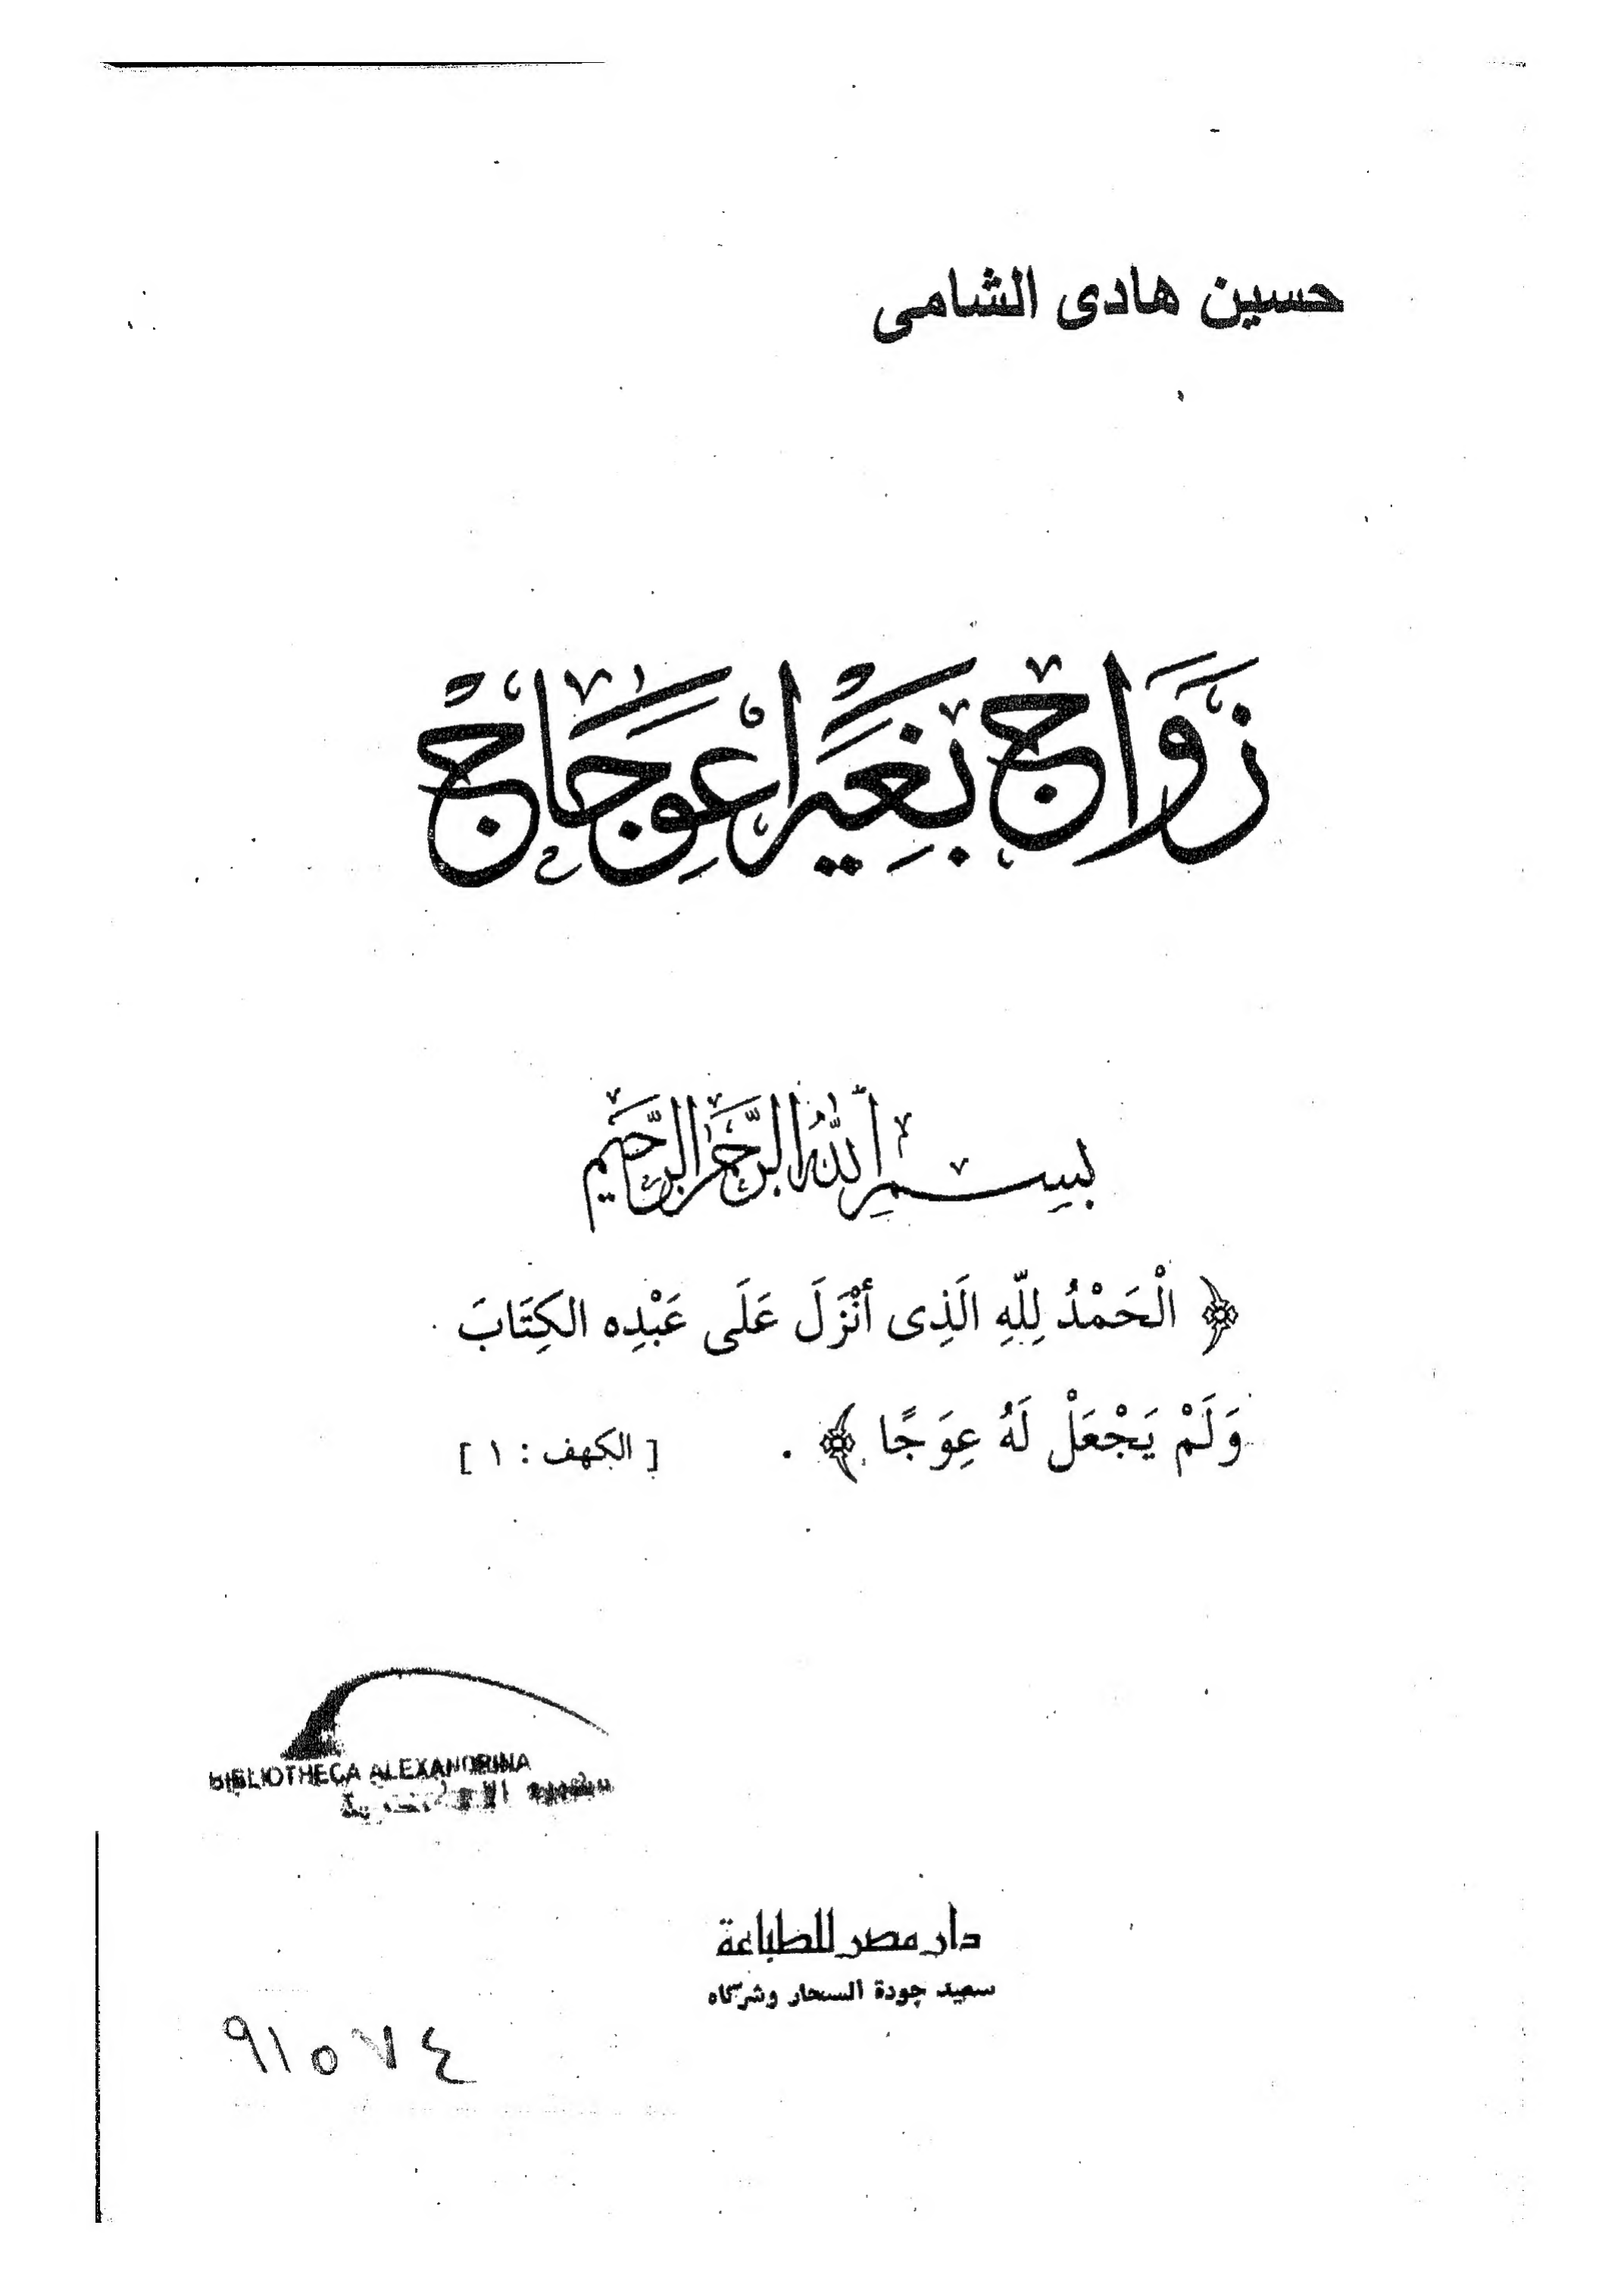 حسين هادى الشامى
زَوَاجٌ بِغَيْرِ اعْوِجَاجٍ
بِسْمِ اللهِ الرَّحْمَٰنِ الرَّحِيمِ
﴿ الْحَمْدُ لِلّهِ الَذِى أَنْزَلَ عَلَى عَبْدِه الكِتَابَ
وَلَمْ يَجْعَلْ لَهُ عِوَجًا ﴾ . [ الكهف : ١ ]
BIBLIOTHECA ALEXANDRINA
دار مصر للطباعة
سعيد جودة السحار وشركاه
٩١٥٧٤